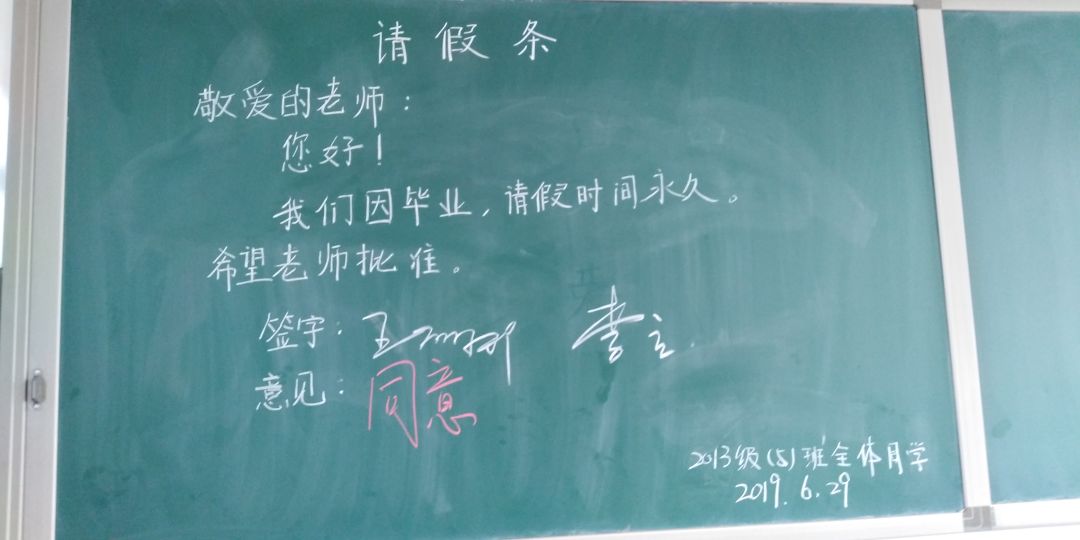 请假条
敬爱的老师：
您好！
我们因毕业，请假时间永久。
希望老师批准。
签字：王 李立
意见：同意
2013级（5）班全体同学
2019.6.29